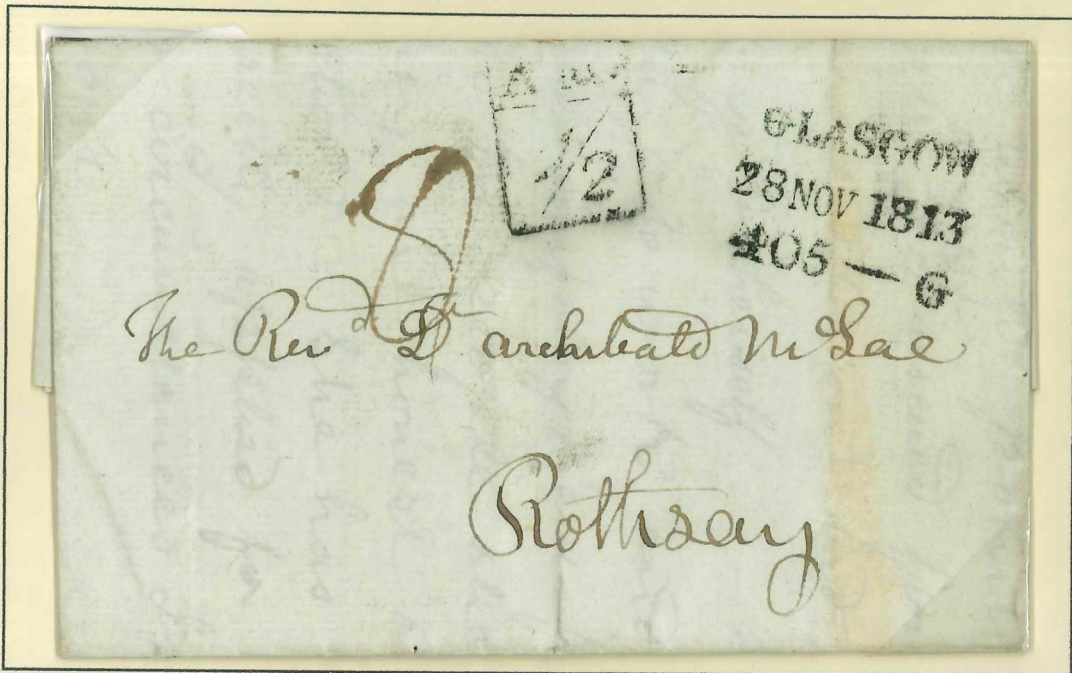 1/2
GLASGOW
28 NOV 1813
405 — G
8
The Revd Dr archibald McLae
Rothsay